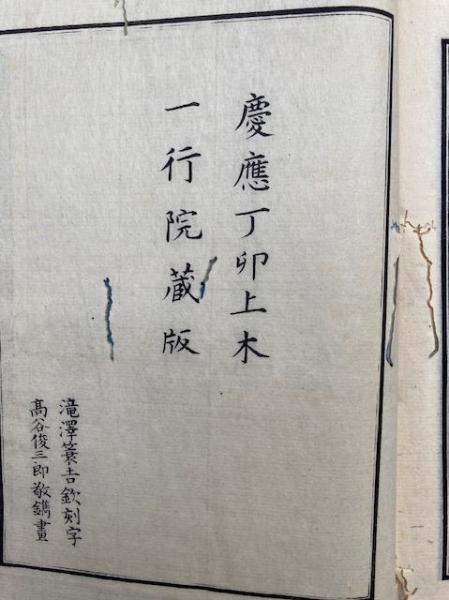 慶應丁卯上木
一行院藏版
滝澤簑吉欽刻字
髙谷俊三郎敬鐫畫